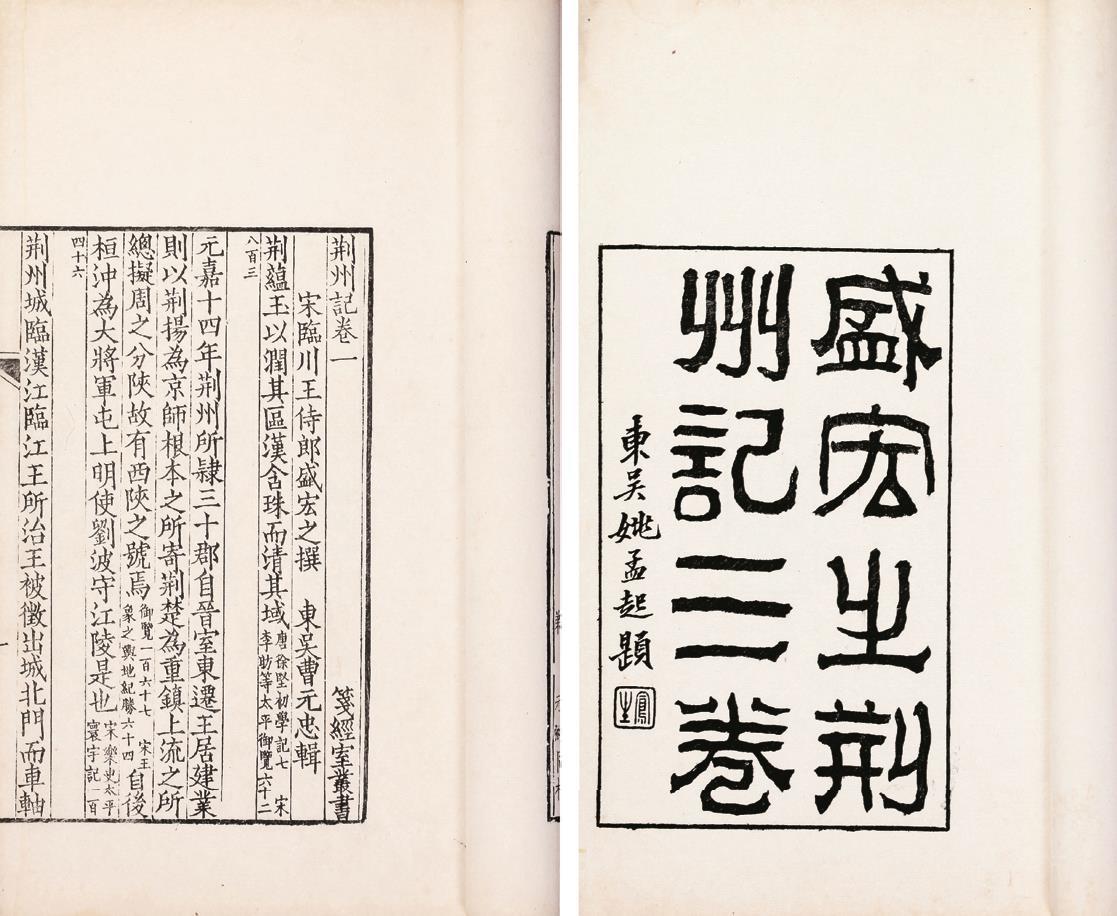 盛宏之荊
州記三卷
東吳姚孟起題
鳳生
荊州記卷一 箋經室叢書
宋臨川王侍郎盛宏之撰 東吳曹元忠輯
荊蘊玉以潤其區漢含珠而清其域 唐徐堅初學記七 宋李昉等太平御覽六十二
八百三
元嘉十四年荊州所隷三十郡自晉室東遷王居建業
則以荊揚為京師根本之所寄荊楚為重鎮上流之所
總擬周之分陝故有西陝之號焉 御覽一百六十七 宋王象之輿地紀勝六十四 自後
桓沖為大將軍屯上明使劉波守江陵是也 宋樂史太平寰宇記一百
四十六
荊州城臨漢江臨江王所治王被徵出城北門而車軸